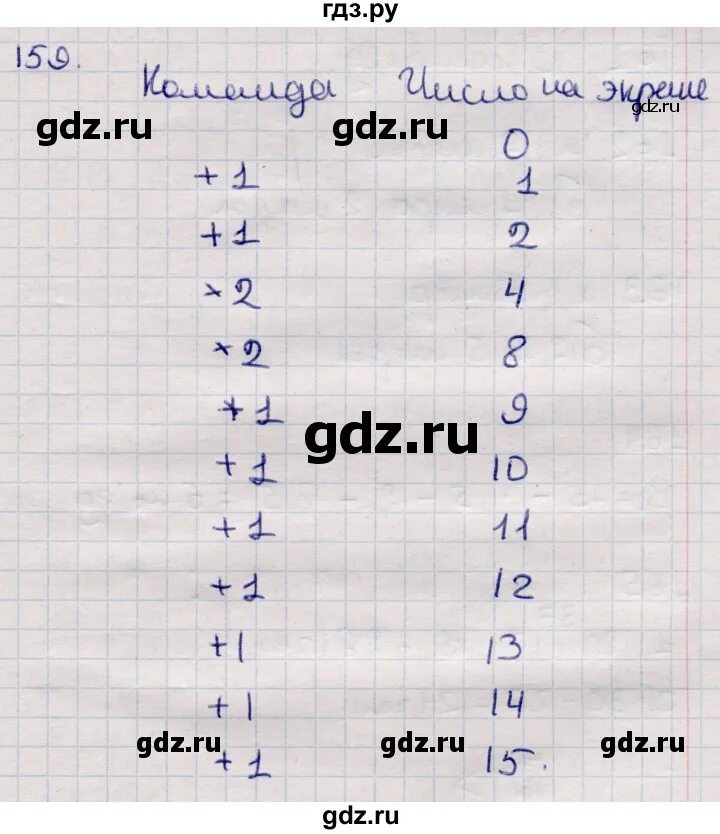 гдз.ру
159.
Команда Число на экране
gdz.ru gdz.ru gdz.ru
0
+1 1
+1 2
×2 4
×2 8
+1 9
gdz.ru
+1 10
+1 11
+1 12
+1 13
+1 14
gdz.ru gdz.ru gdz.ru
+1 15.
gdz.ru